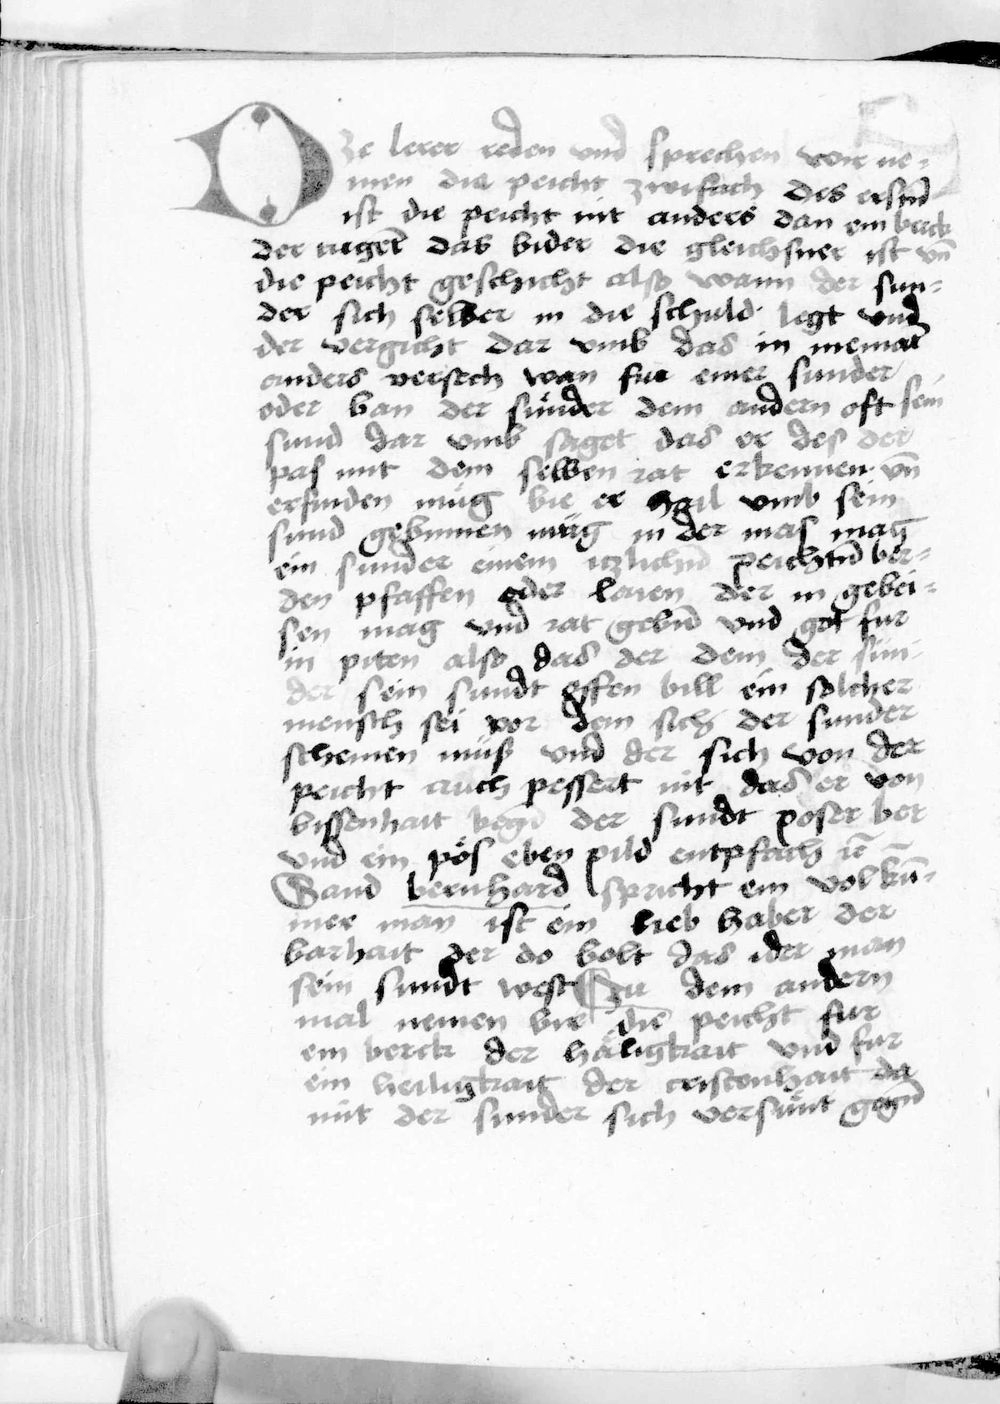 Dye lerer reden vnd sprechen wir ne-
men die peicht zwifach des ersten̄
ist die peicht nit anders dan ein berck
der tugent̄ das bider die gleichsner ist vn̄
die peicht geschicht also wann der sun-
der sich selber in die schuld legt vnd
der vergicht dar vmb das in nemant
anders versech wan fur einer sunder
oder ban der sunder dem andern oft sein
sund dar vmb saget das er des der
pas mit dem selben rat erkennen vn̄
erfinden mug bie er hail vmb sein
sund gebinnen mug in der mas mag
ein sunder einem itzlichn̄ peichtn̄ ber-
den pfaffen oder laien der in gebei-
sen mag vnd rat gebn̄ vnd got fur
in piten also das der dem der sun-
der sein sundt offen bill ein solcher
mensch sei vor dem sich der sunder
schemen muß vnd der sich von der
peicht auch pessert nit das er von
bissenhait begn̄ der sundt poser ber
vnd ein pös eben pild entpfach ꝛc̄
Sand bernhard spricht ein volku̅-
mer man ist ein lieb haber der
barhait der do bolt das ider man
sein sundt west Zu dem andern
mal nemen bir die peicht fur
ein berck der häligkait vnd fur
ein heiligkait der cristenhait da
mit der sunder sich versunt gegn̄